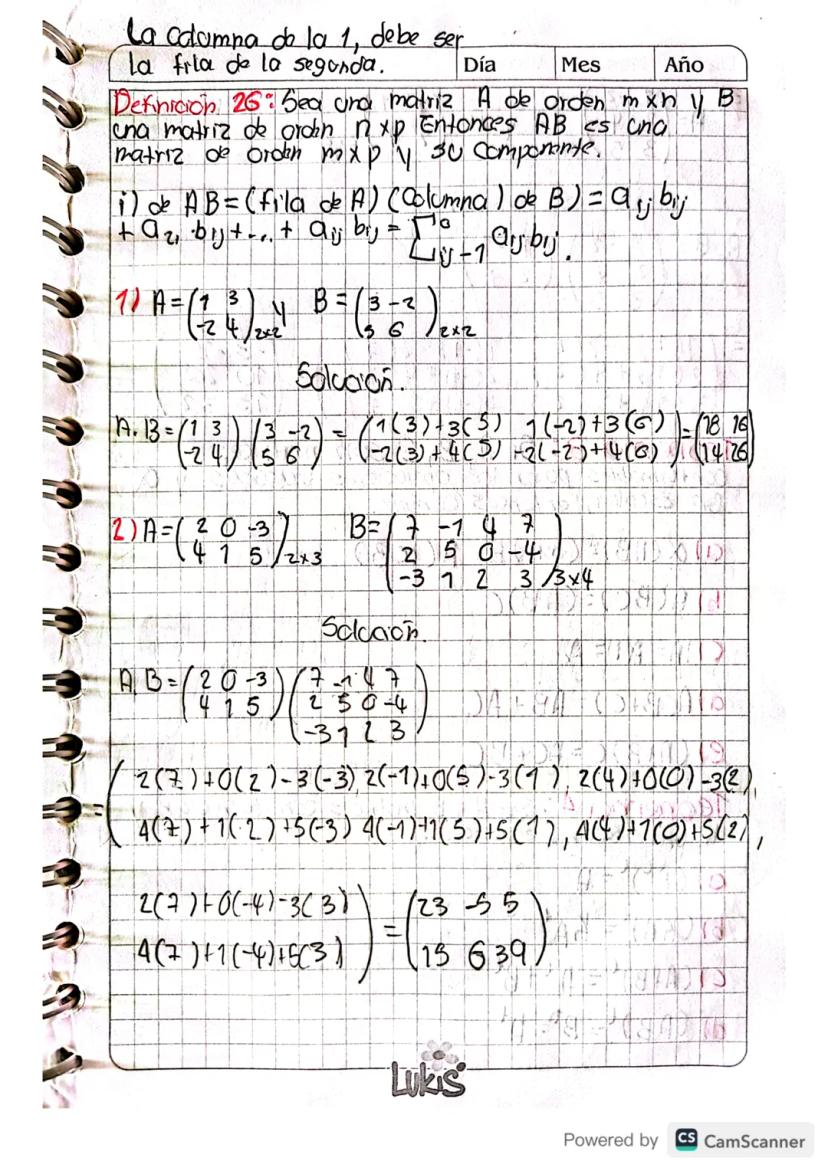 La columna de la 1, debe ser
la fila de la segunda. Día Mes Año
Definición 26: Sea una matriz A de orden mxn y B
una matriz de orden nxp Entonces AB es una
matriz de orden mxp y su componente.
i) de AB = (fila de A) (Columna) de B) = a₁ⱼ bᵢⱼ
+ a₂₁ · b₁ⱼ + ... + aᵢⱼ bᵢⱼ = Σ aᵢⱼ bᵢⱼ.
1) A = (1 3 y B = (3 -2
-2 4)2x2 5 6)2x2
Solución.
A. B = (1 3) (3 -2) = (1(3)+3(5) 1(-2)+3(6)) = (18 16)
(-2 4) (5 6) (-2(3)+4(5) -2(-2)+4(6)) (14 26)
2) A = (2 0 -3 B = (7 -1 4 7
4 1 5)2x3 2 5 0 -4
-3 1 2 3)3x4
Solución.
A B = (2 0 -3) (7 -1 4 7
4 1 5) 2 5 0 -4
-3 1 2 3)
= (2(7)+0(2)-3(-3), 2(-1)+0(5)-3(1), 2(4)+0(0)-3(2),
4(7)+1(2)+5(-3) 4(-1)+1(5)+5(1), 4(4)+1(0)+5(2),
2(7)+0(-4)-3(3)) = (23 -5 5)
4(7)+1(-4)+5(3)) (15 6 39)
LUKIS
Powered by CS CamScanner